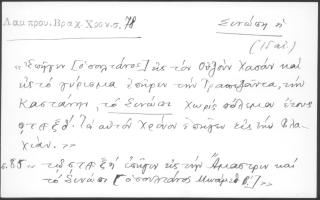 Λαμπρου. Βραχ. Χρον. σ. 78
Σινώπη ἡ
(Πόλ.)
"ἐπῆγεν [ὁ σουλτάνος] εἰς τὸν Οὐζοὺν Χασὰν καὶ
εἰς τὸ γύρισμα ἐπῆρεν τὴν Τραπεζούντα, τὴν
Καστάμην, τὸ Σινώπι χωρὶς πόλεμον ἔτους
͵ϛ Ϡ ξ θʹ. τῷ αὐτῷ χρόνῳ ἐπῆγεν εἰς τὴν Βλα-
χίαν.»»
σ. 85 "τῷ ͵ϛ Ϡ ξ ηʹ ἐπῆγεν εἰς τὴν Ἄμαστριν καὶ
τὸ Σινώπι [ὁ σουλτάνος Μωάμεθ Β'.]»»